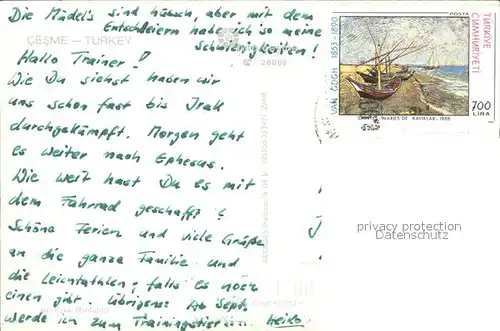 Die Mädel's sind hübsch, aber mit dem
Entschleiern habe ich so meine
Schwierigkeiten!
ÇEŞME – TURKEY
26000
Hallo Trainer!
Wie Du siehst haben wir
uns schon fast bis Irak
durchgekämpft. Morgen geht
es weiter nach Ephesus.
Wie weit hast Du es mit
dem Fahrrad geschafft?
Schöne Ferien und viele Grüße
an die ganze Familie und
die Leichtathlen, falls es noch
einen gibt. Übrigens: Ab Sept.
werde ich zum Trainingstier!!! Heiko
POSTA
TÜRKİYE
CUMHURİYETİ
VAN GOGH 1853-1890
700
LİRA
MARIES'DE KAYIKLAR-1888
privacy protection
Datenschutz